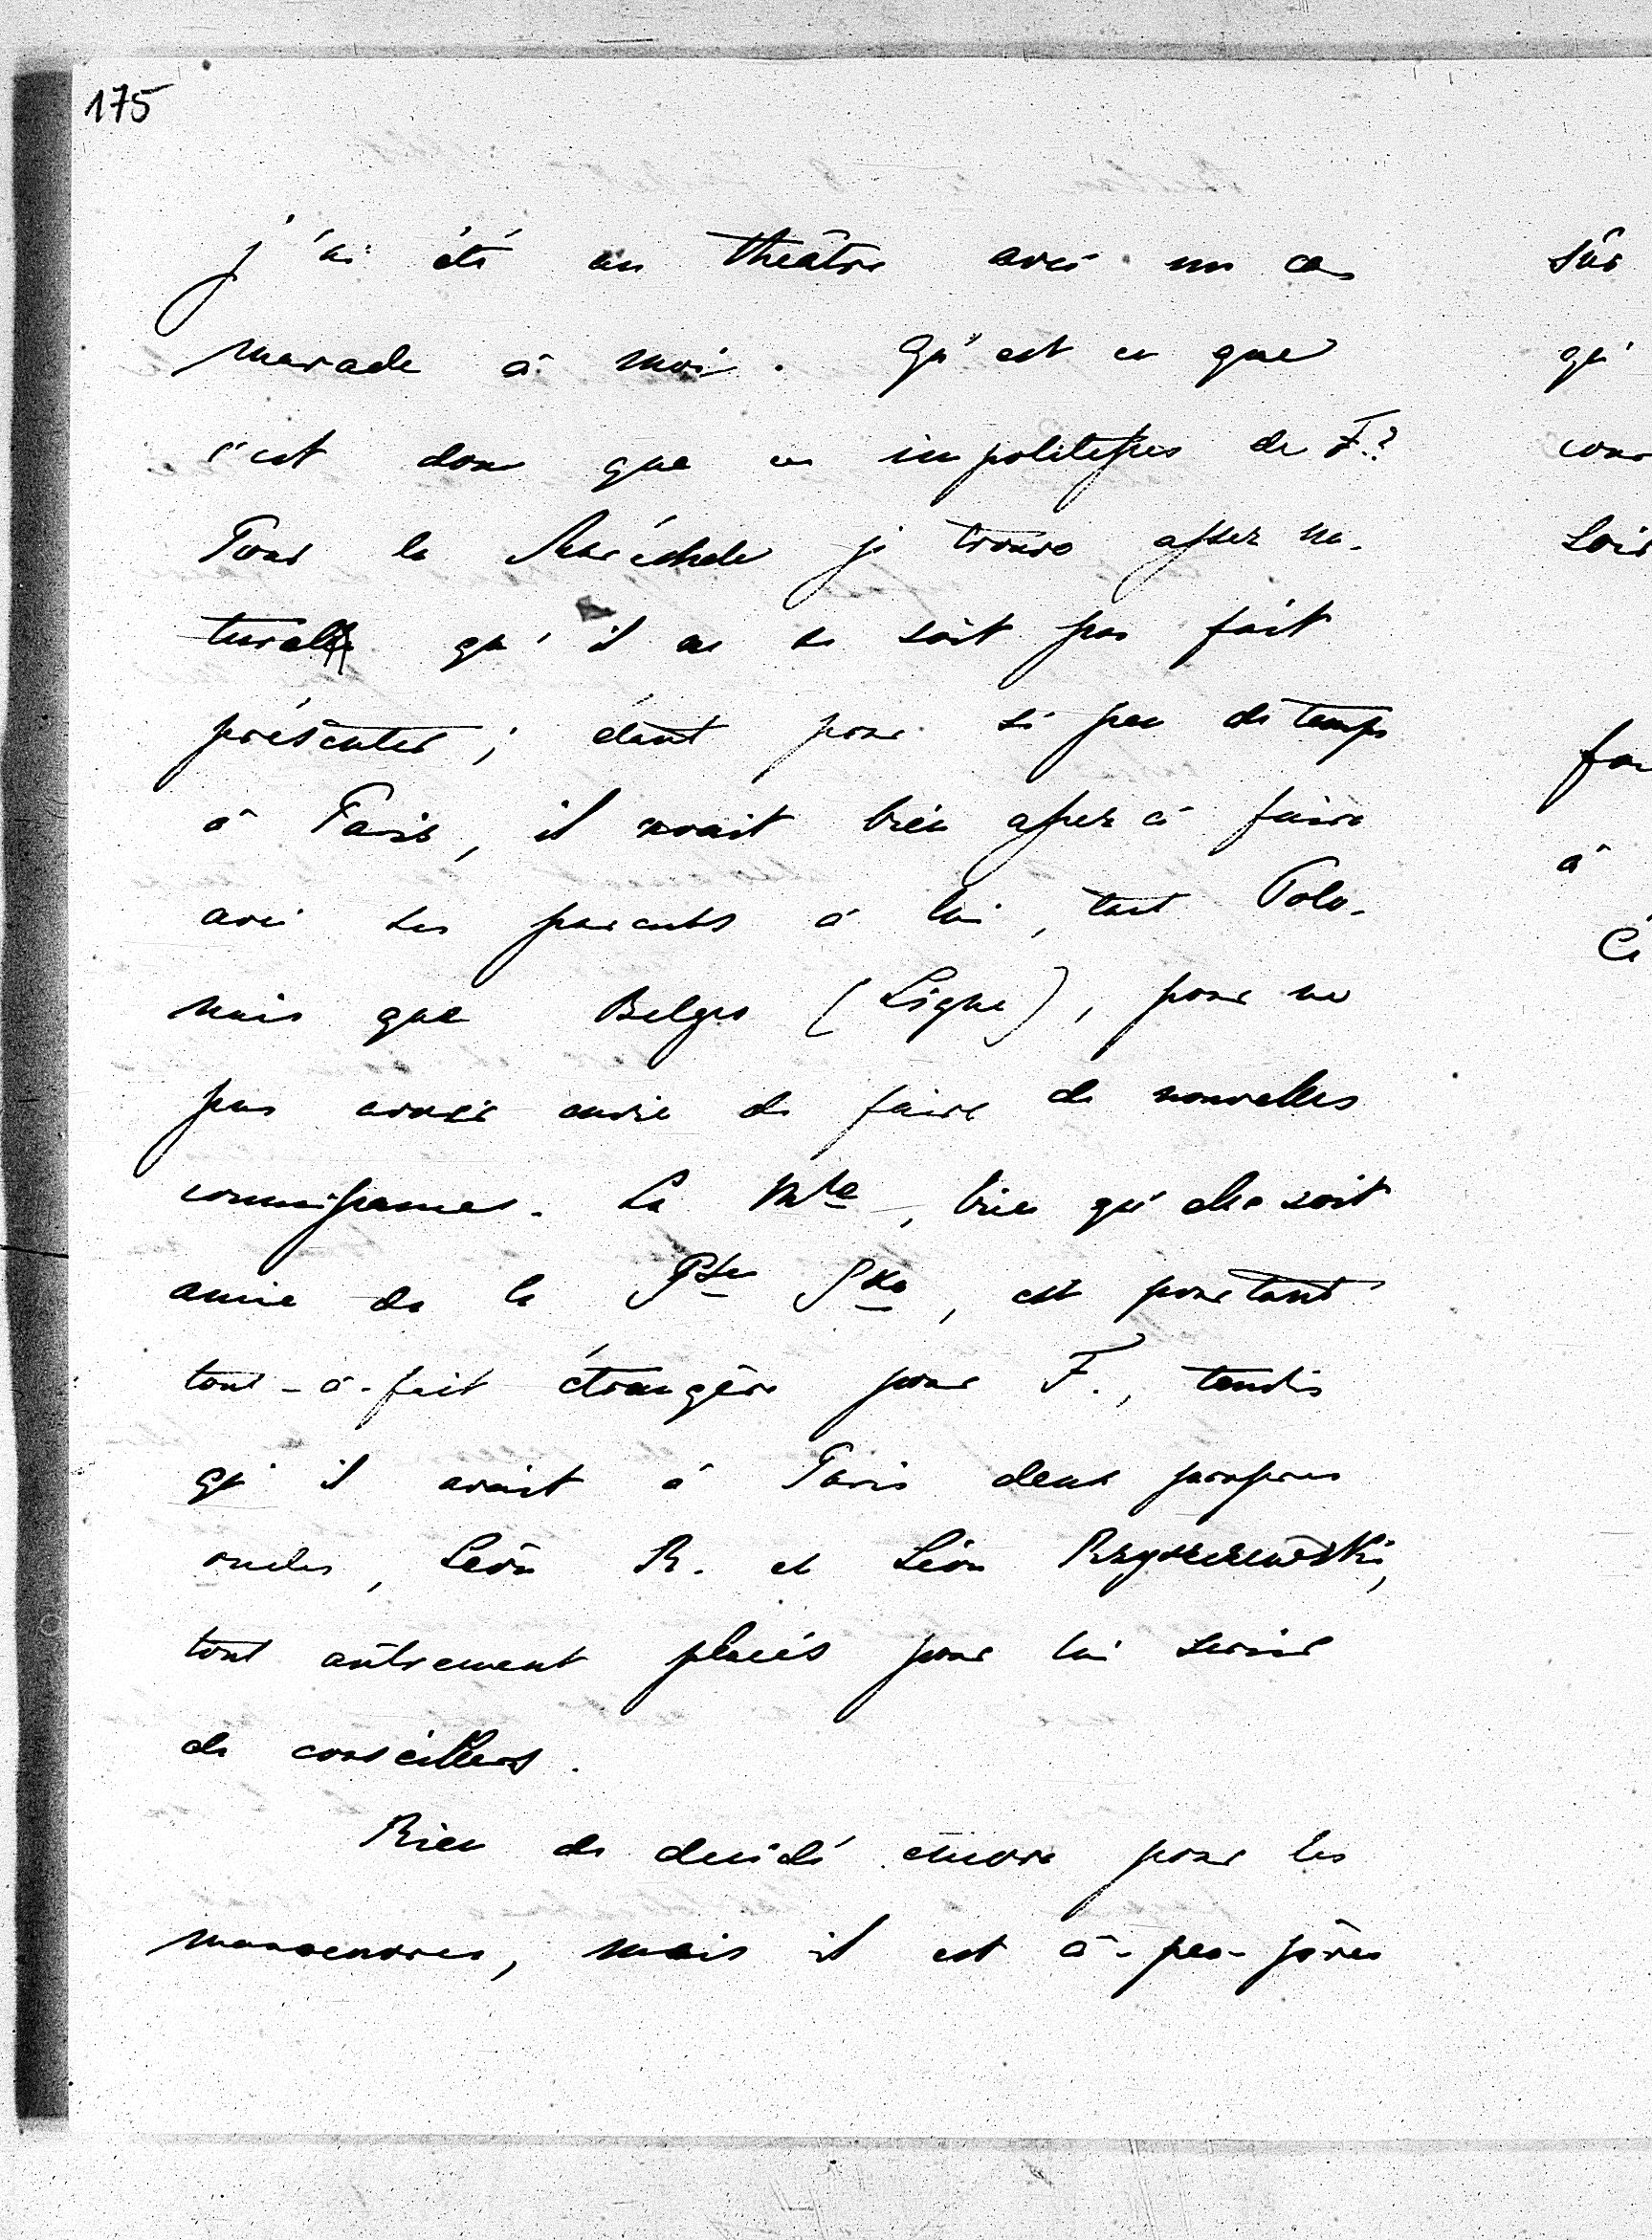 175
j'ai été au théâtre avec un ca
marade à moi. Qu'est ce que
c'est donc que ces impolitesses de F.?
Pour la Maréchale je trouve assez na-
turel qu'il ne se soit pas fait
présenter; étant pour si peu de temps
à Paris, il avait bien assez à faire
avec ses parents à lui, tant Polo-
nais que Belges (Ligne), pour ne
pas avoir envie de faire de nouvelles
connaissances. La Mle, bien qu'elle soit
amie de la Psse Ska, est pourtant
tout-à-fait étrangère pour F., tandis
qu'il avait à Paris deux propres
oncles, Léon R. et Léon Rzyszczewski,
tout autrement placés pour lui servir
de conseillers.
Rien de décidé encore pour les
manoeuvres, mais il est à-peu-près
sûr
qu'
soir
à
Ce